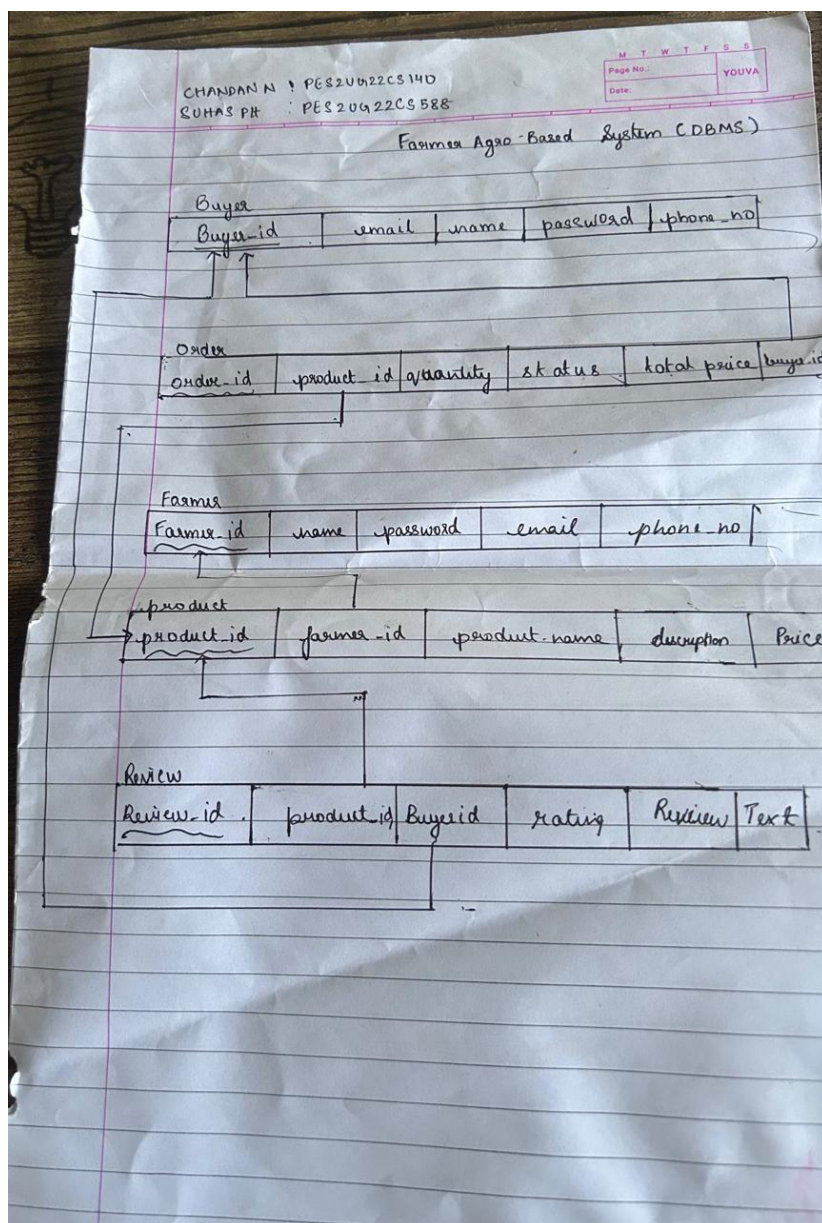 M T W T F S S
Page No.:
YOUVA
Date:
CHANDAN N : PES2UG22CS140
SUHAS PH : PES2UG22CS588
Farmer Agro-Based System (DBMS)
Buyer
Buyer_id email name password phone_no
Order
order_id product_id quantity status total price buyer_id
Farmer
Farmer_id name password email phone_no
product
product_id farmer_id product.name description Price
Review
Review_id. product_id Buyerid rating Review Text